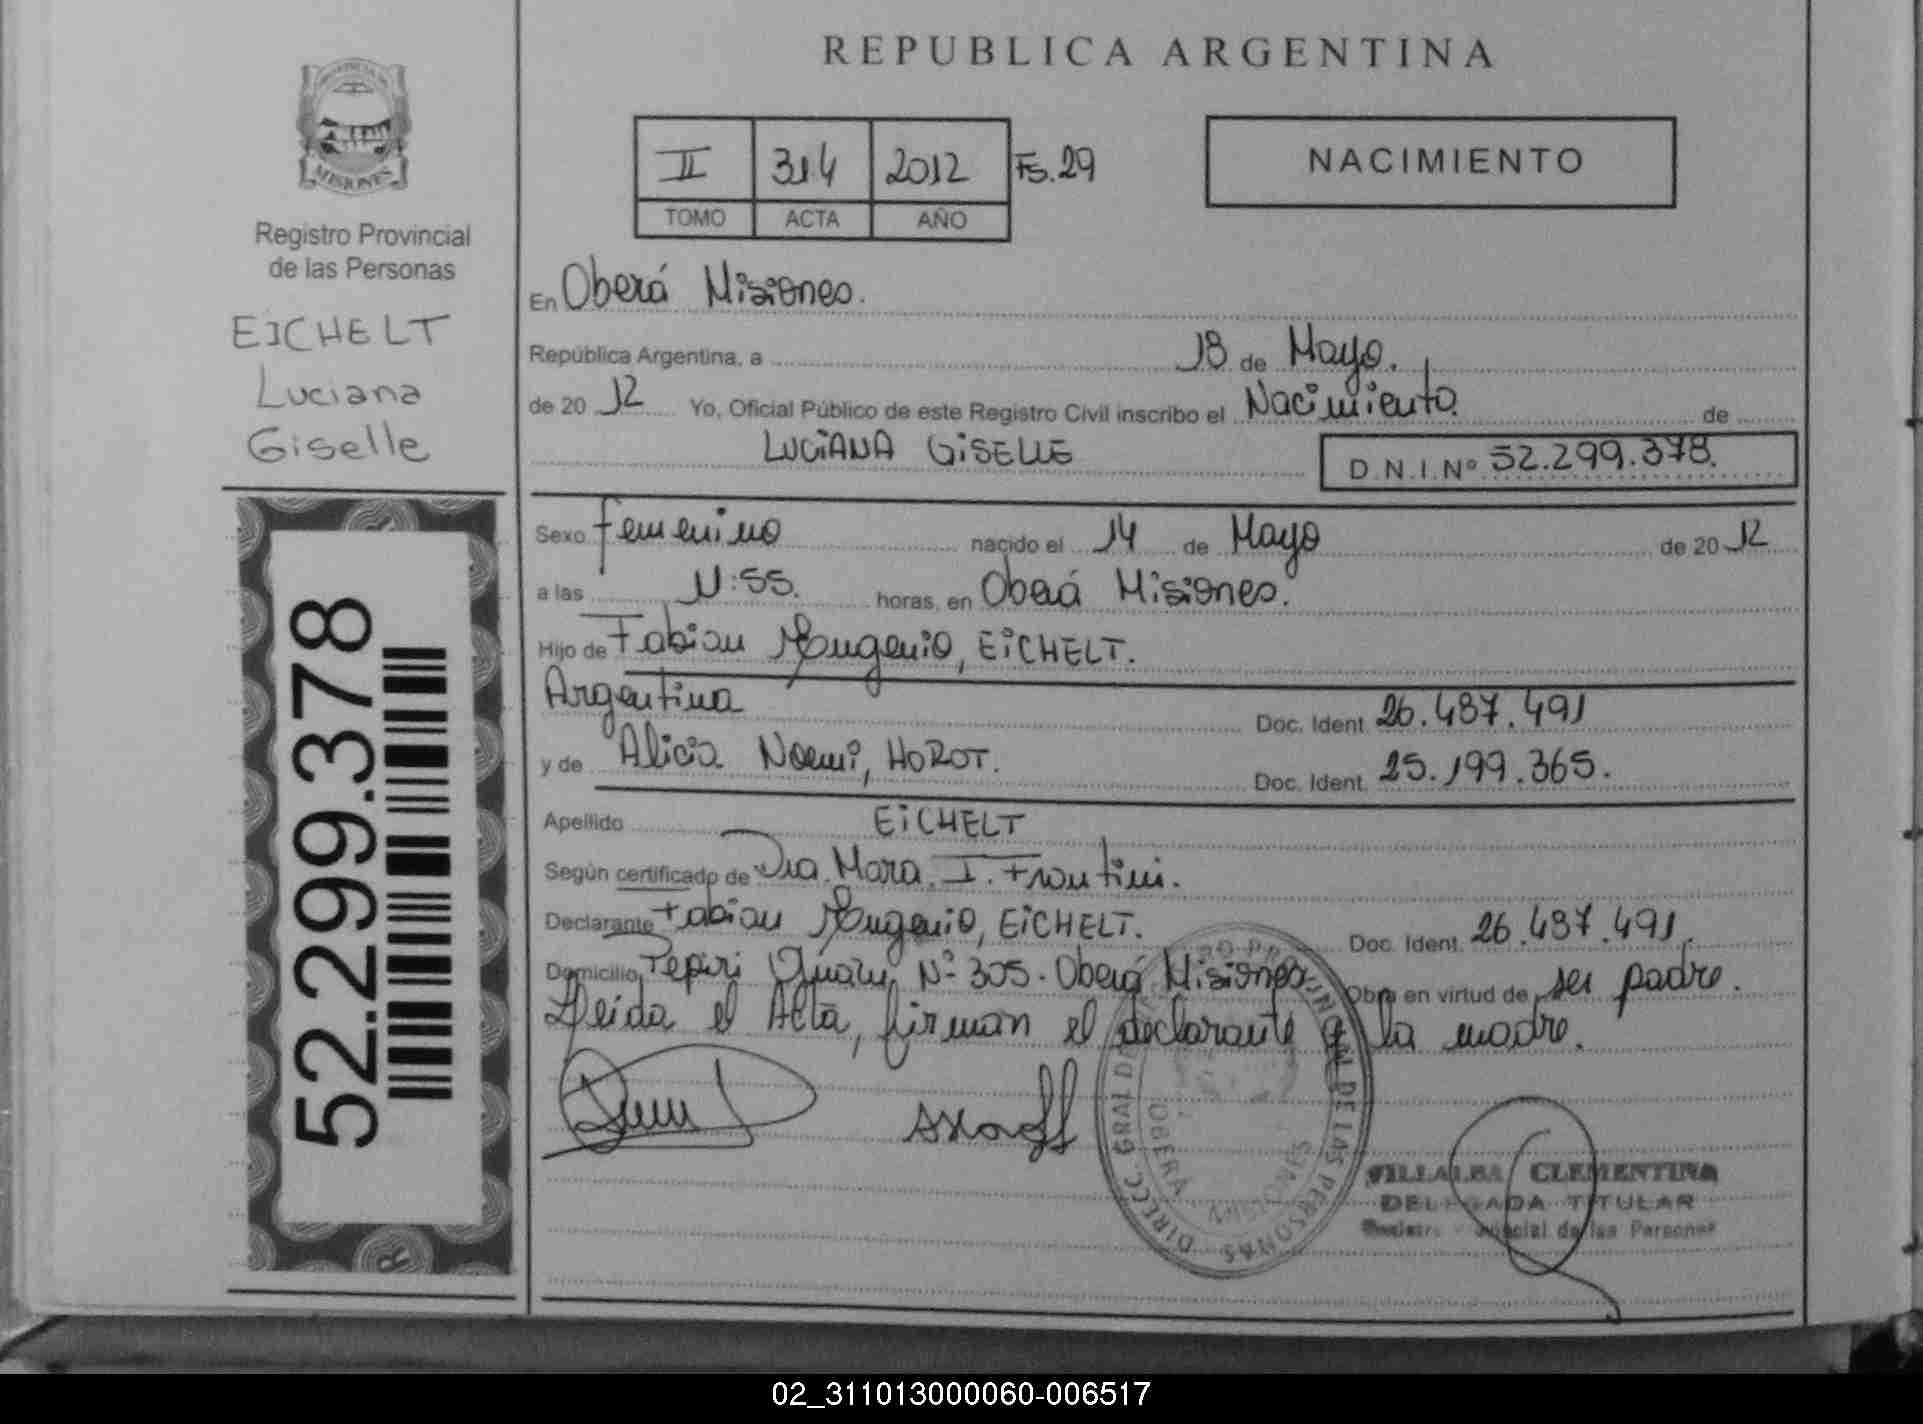 REPUBLICA ARGENTINA
PROVINCIA DE
MISIONES
Registro Provincial
de las Personas
EICHELT
Luciana
Giselle
52.299.378
II 314 2012 Fs. 29
TOMO ACTA AÑO
NACIMIENTO
En Oberá Misiones.
República Argentina, a 18 de Mayo.
de 20 12 Yo, Oficial Público de este Registro Civil inscribo el Nacimiento. de
LUCIANA GISELLE D.N.I.Nº 52.299.378.
Sexo Femenino nacido el 14 de Mayo de 20 12
a las 11:55. horas, en Oberá Misiones.
Hijo de Fabian Eugenio, EICHELT.
Argentina Doc. Ident. 26.487.491
y de Alicia Noemi, HOROT. Doc. Ident. 25.199.365.
Apellido EICHELT
Según certificado de Dra. Mara. I. Frontini.
Declarante Fabian Eugenio, EICHELT. Doc. Ident. 26.487.491.
Domicilio Pepiri Guazu Nº 305. Oberá Misiones. Obra en virtud de ser padre.
Leída el Acta, firman el declarante y la madre.
DIRECC. GRAL DE PROVINCIAL DE LAS PERSONAS
OBERÁ
MISIONES
VILLALBA CLEMENTINA
DELEGADA TITULAR
de las Personas
02_311013000060-006517